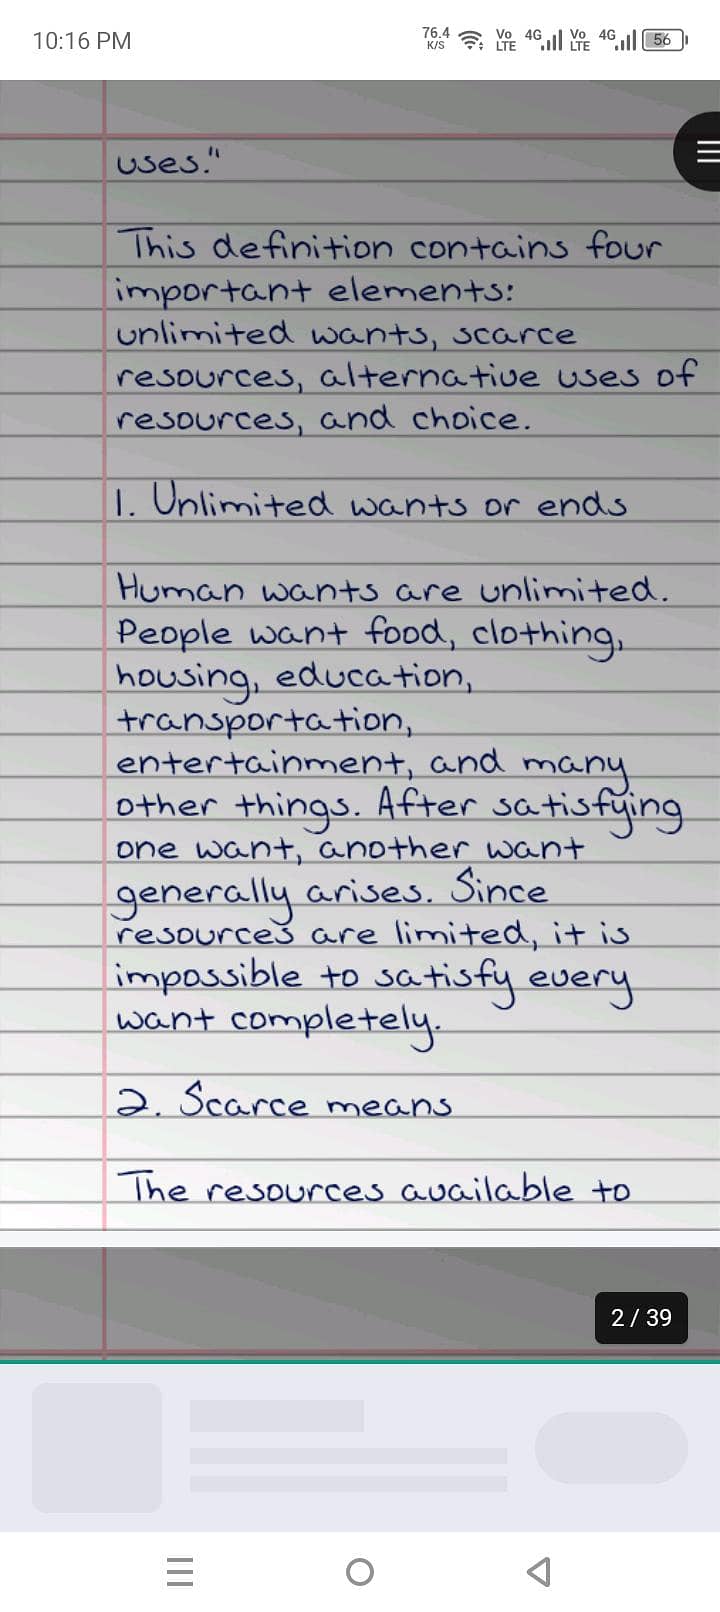 10:16 PM
76.4 K/S Vo LTE 4G Vo LTE 4G 56
uses."
This definition contains four
important elements:
unlimited wants, scarce
resources, alternative uses of
resources, and choice.
1. Unlimited wants or ends
Human wants are unlimited.
People want food, clothing,
housing, education,
transportation,
entertainment, and many
other things. After satisfying
one want, another want
generally arises. Since
resources are limited, it is
impossible to satisfy every
want completely.
2. Scarce means
The resources available to
2 / 39